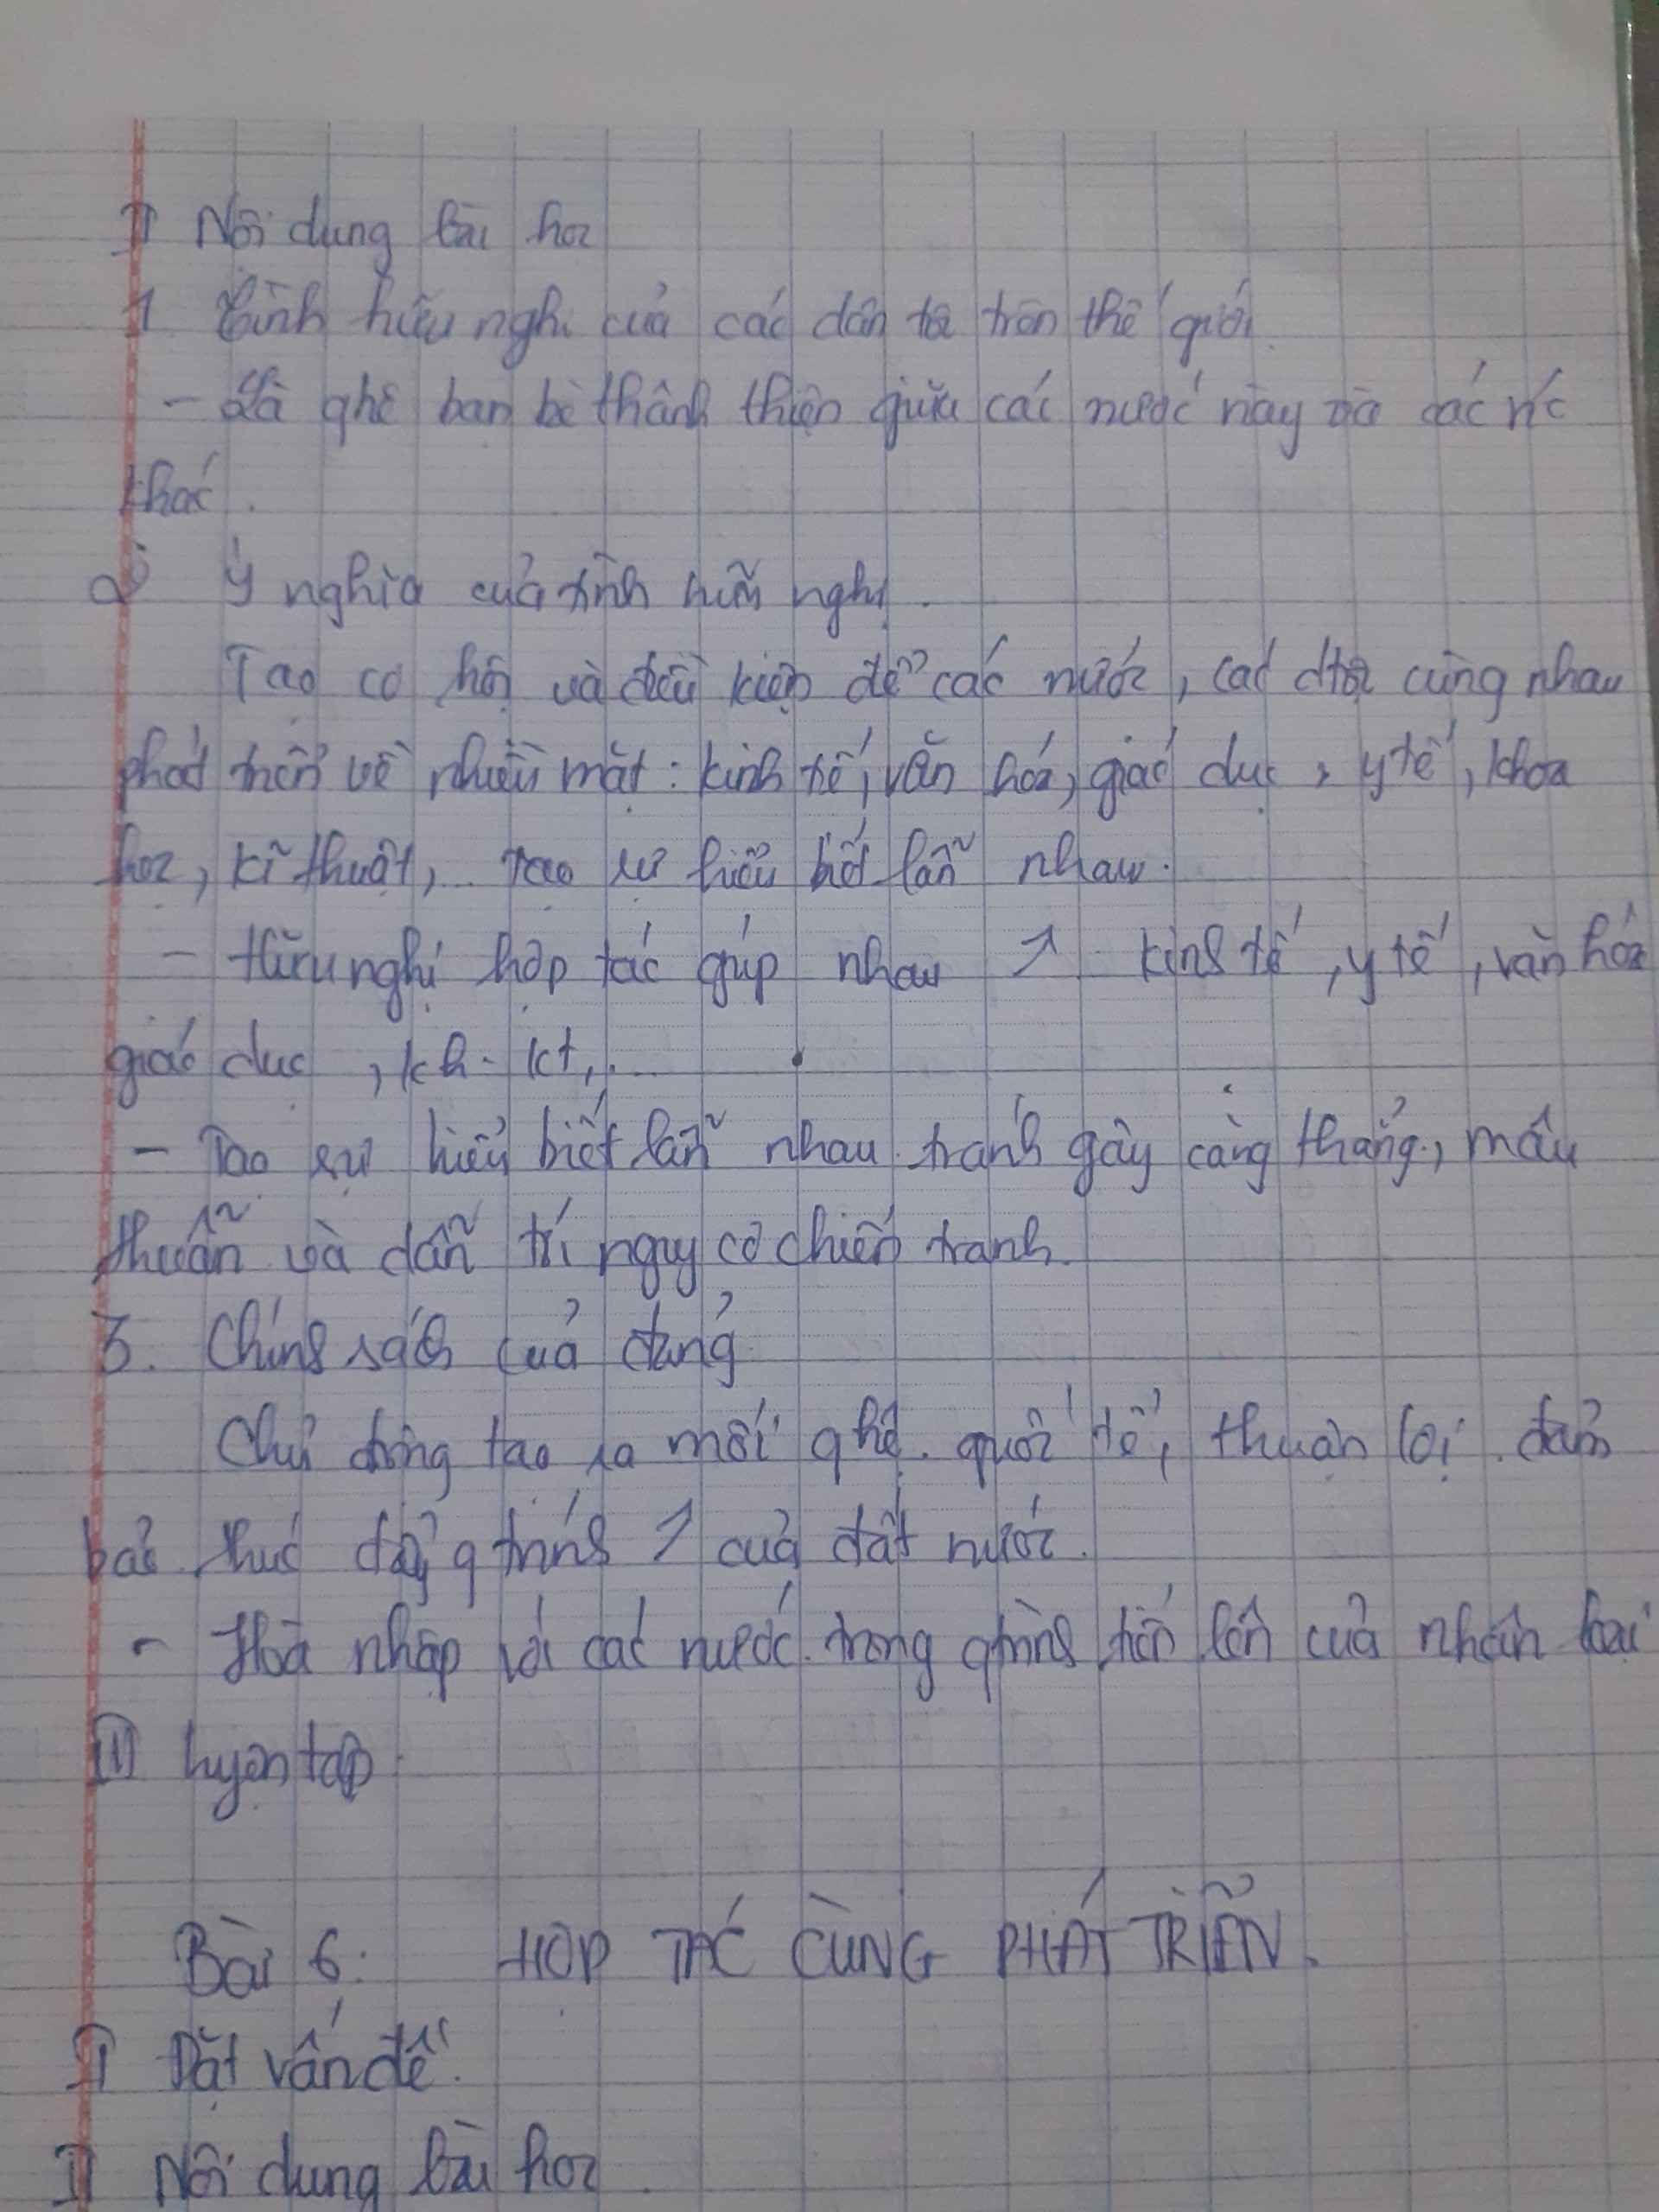 II Nội dung bài học
1. Tình hữu nghị của các dân tộc trên thế giới
- Là qhệ bạn bè thân thiện giữa các nước này và các nc
khác.
2 Ý nghĩa của tình hữu nghị.
Tạo cơ hội và điều kiện để các nước, các dtộc cùng nhau
phát triển về nhiều mặt: kinh tế, văn hóa, giáo dục, y tế, khoa
học, kĩ thuật,... Tạo sự hiểu biết lẫn nhau.
- Hữu nghị hợp tác giúp nhau ↗ kinh tế, y tế, văn hóa
giáo dục, kh - kt,...
- Tạo sự hiểu biết lẫn nhau tránh gây căng thẳng, mâu
thuẫn và dẫn tới nguy cơ chiến tranh.
3. Chính sách của đảng
Chủ động tạo ra mối qhệ quốc tế, thuận lợi đảm
bảo thúc đẩy qtrình ↗ của đất nước.
- Hòa nhập với các nước trong qtrình tiến lên của nhân loại
III Luyện tập
Bài 6: HỢP TÁC CÙNG PHÁT TRIỂN.
I Đặt vấn đề.
II Nội dung bài học.